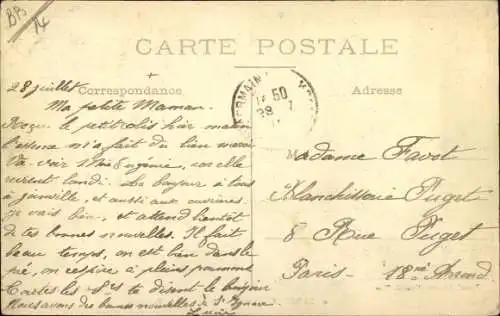 BB
14
CARTE POSTALE
Correspondance
Adresse
28 juillet
Ma petite Maman.
Reçu le petit colis hier matin
l'essence m'a fait du bien merci
Va voir Mme Eugénie, car elle
lundi. Le bonjour à tous
à Joinville, et aussi aux ouvrières.
je vais bien, et attend bientôt
de tes bonnes nouvelles. Il fait
beau temps, on est bien dans le
pré, on respire à pleins poumons
Toutes les te disent le bonjour
Nous avons des bonnes nouvelles à St Ignace
Lucie
GERMAIN
50
28 7
Madame Favot
Blanchisserie Puget
8 Rue Puget
Paris - 18me Arrond.